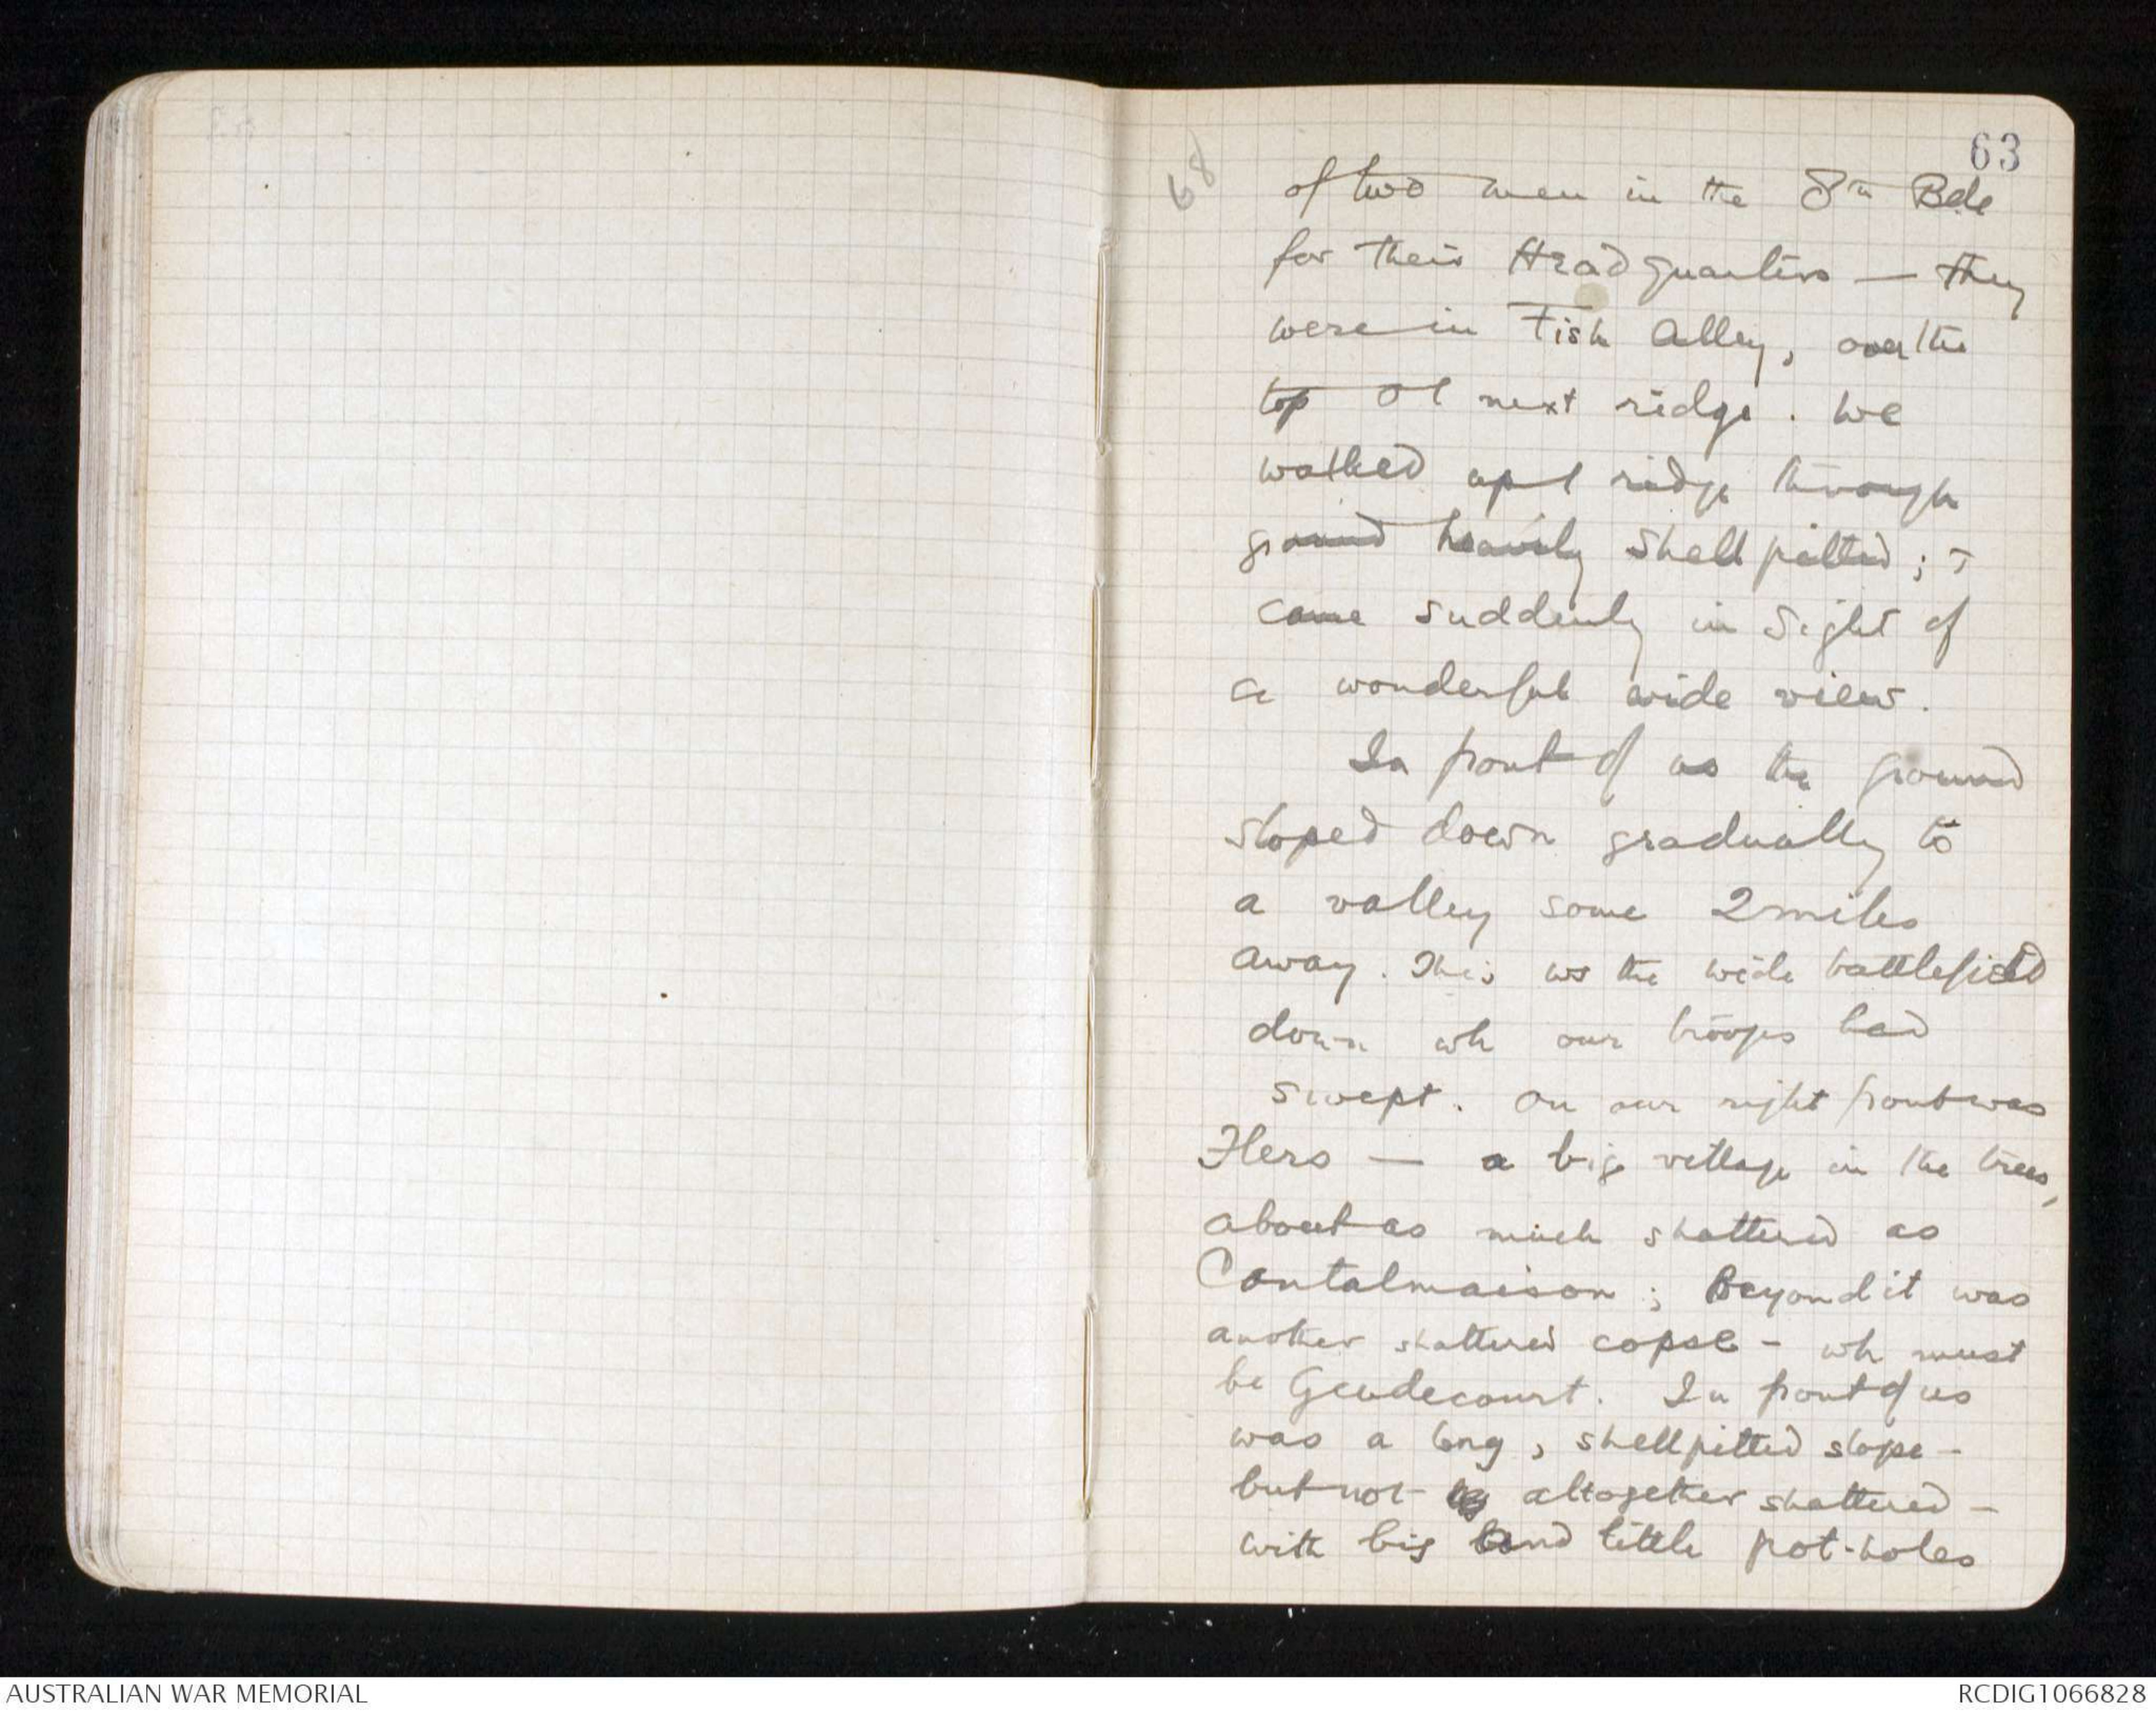 63
68
of two men in the 8th Bde
for their Headquarters — they
were in Fish Alley, over the
top of next ridge. We
walked up t ridge through
ground heavily shell pitted; &
came suddenly in sight of
a wonderful wide view.
In front of us the ground
sloped down gradually to
a valley some 2 miles
away. This ws the wide battlefield
down wh our troops had
swept. On our right front was
Flers — a big village in the trees,
about as much shattered as
Contalmaison; Beyond it was
another shattered copse - wh must
be Geudecourt. In front of us
was a long, shellpitted slope -
but not altogether shattered -
with big and little pot-holes
AUSTRALIAN WAR MEMORIAL
RCDIG1066828